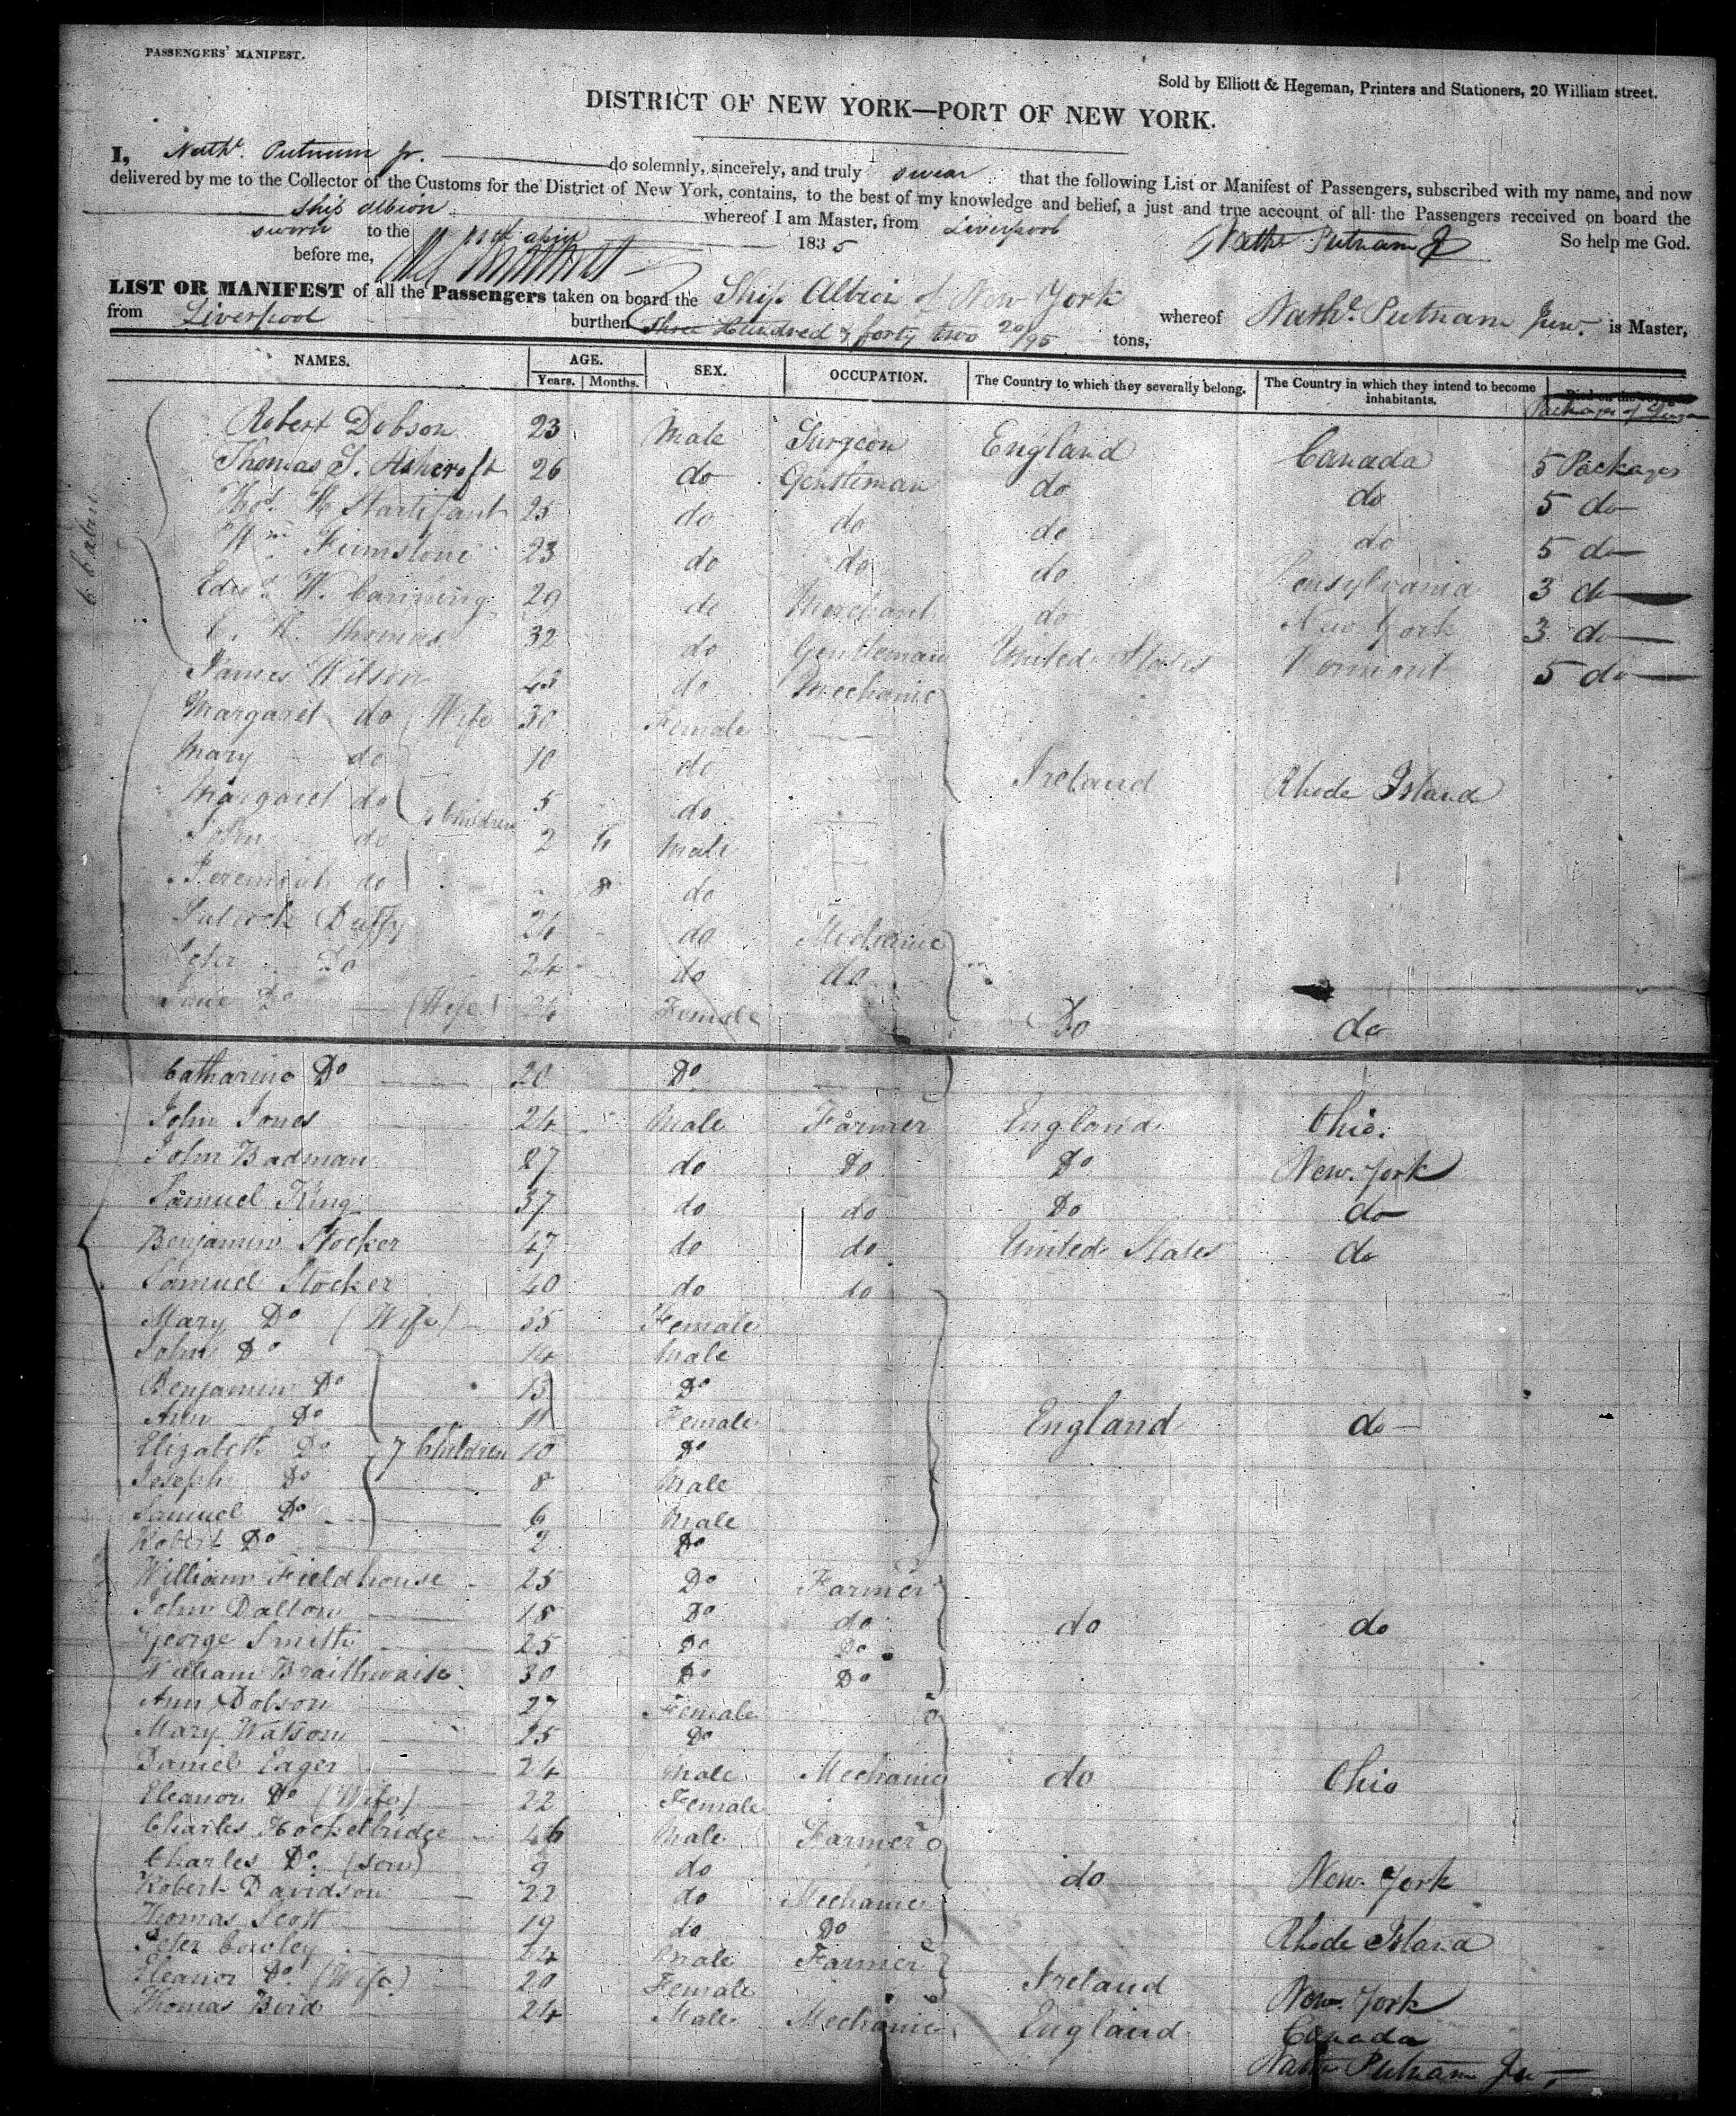 PASSENGERS' MANIFEST.
Sold by Elliott & Hegeman, Printers and Stationers, 20 William street.
DISTRICT OF NEW YORK—PORT OF NEW YORK.
I, Nath.l Putnam Jr. do solemnly, sincerely, and truly swear that the following List or Manifest of Passengers, subscribed with my name, and now
delivered by me to the Collector of the Customs for the District of New York, contains, to the best of my knowledge and belief, a just and true account of all the Passengers received on board the
Ship Albion whereof I am Master, from Liverpool
sworn to the April 1835 Nathl Putnam Jr So help me God.
before me,
LIST OR MANIFEST of all the Passengers taken on board the Ship Albion of New York whereof Nathl. Putnam Junr. is Master,
from Liverpool burthen Three Hundred & forty two 20/95 tons,
NAMES. AGE. SEX. OCCUPATION. The Country to which they severally belong. The Country in which they intend to become inhabitants. Died on the voyage
Years. Months. Packages of
6 Cabin
Robert Dobson 23 Male Surgeon England Canada 5 Packages
Thomas S. Ashcroft 26 do Gentleman do do 5 do
Thos. W 25 do do do do 5 do
Wm Firmstone 23 do do do Pensylvania 3 do
Edwd. W. Canning 29 do Merchant do New York 3 do
C. H. Thomas 32 do Gentleman United States Vermont 5 do
James Wilson 43 do Mechanic
Margaret do (Wife 30 Female
Mary do 10 do Ireland Rhode Island
Margaret do Children 5 do
John do 2 6 Male
Jeremiah do 8 do
Patrick Duffy 24 do Mechanic
Peter Do 24 do do
Jane Do (Wife) 24 Female Do do
Catharine Do 20 Do
John Jones 24 Male Farmer England Ohio.
John Badman 27 do Do Do New York
Samuel King 37 do do Do do
Benjamin Stocker 47 do do United States do
Samuel Stocker 40 do do
Mary Do (Wife) 35 Female
John Do 14 Male
Benjamin Do 13 Do
Ann Do 11 Female England do
Elizabeth Do 7 Children 10 Do
Joseph Do 8 Male
Samuel Do 6 Male
Robert Do 2 Do
William Fieldhouse 25 Do Farmer
John Dalton 18 Do do do do
George Smith 25 Do Do
William Braithwaite 30 Do Do
Ann Dobson 27 Female
Mary Watson 25 Do
Daniel Eager 24 Male Mechanic do Ohio
Eleanor Do (Wife) 22 Female
Charles Hockelbridge 46 Male Farmer
Charles Do. (son) 9 do do New York
Robert Davidson 22 do Mechanic
Thomas Scott 19 do Do Rhode Island
Peter Cowley 24 Male Farmer
Eleanor Do. (Wife) 20 Female Ireland New York
Thomas Bird 24 Male Mechanic England Canada
Nathl Putnam Jur.